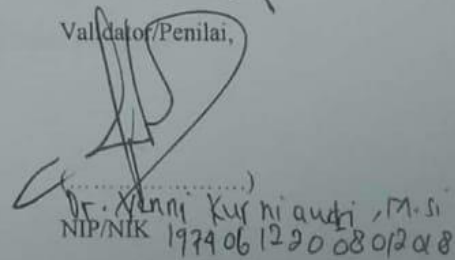 Validator/Penilai,
(....................)
Dr. Yenni Kurniawati, M.Si
NIP/NIK 197406122008012018